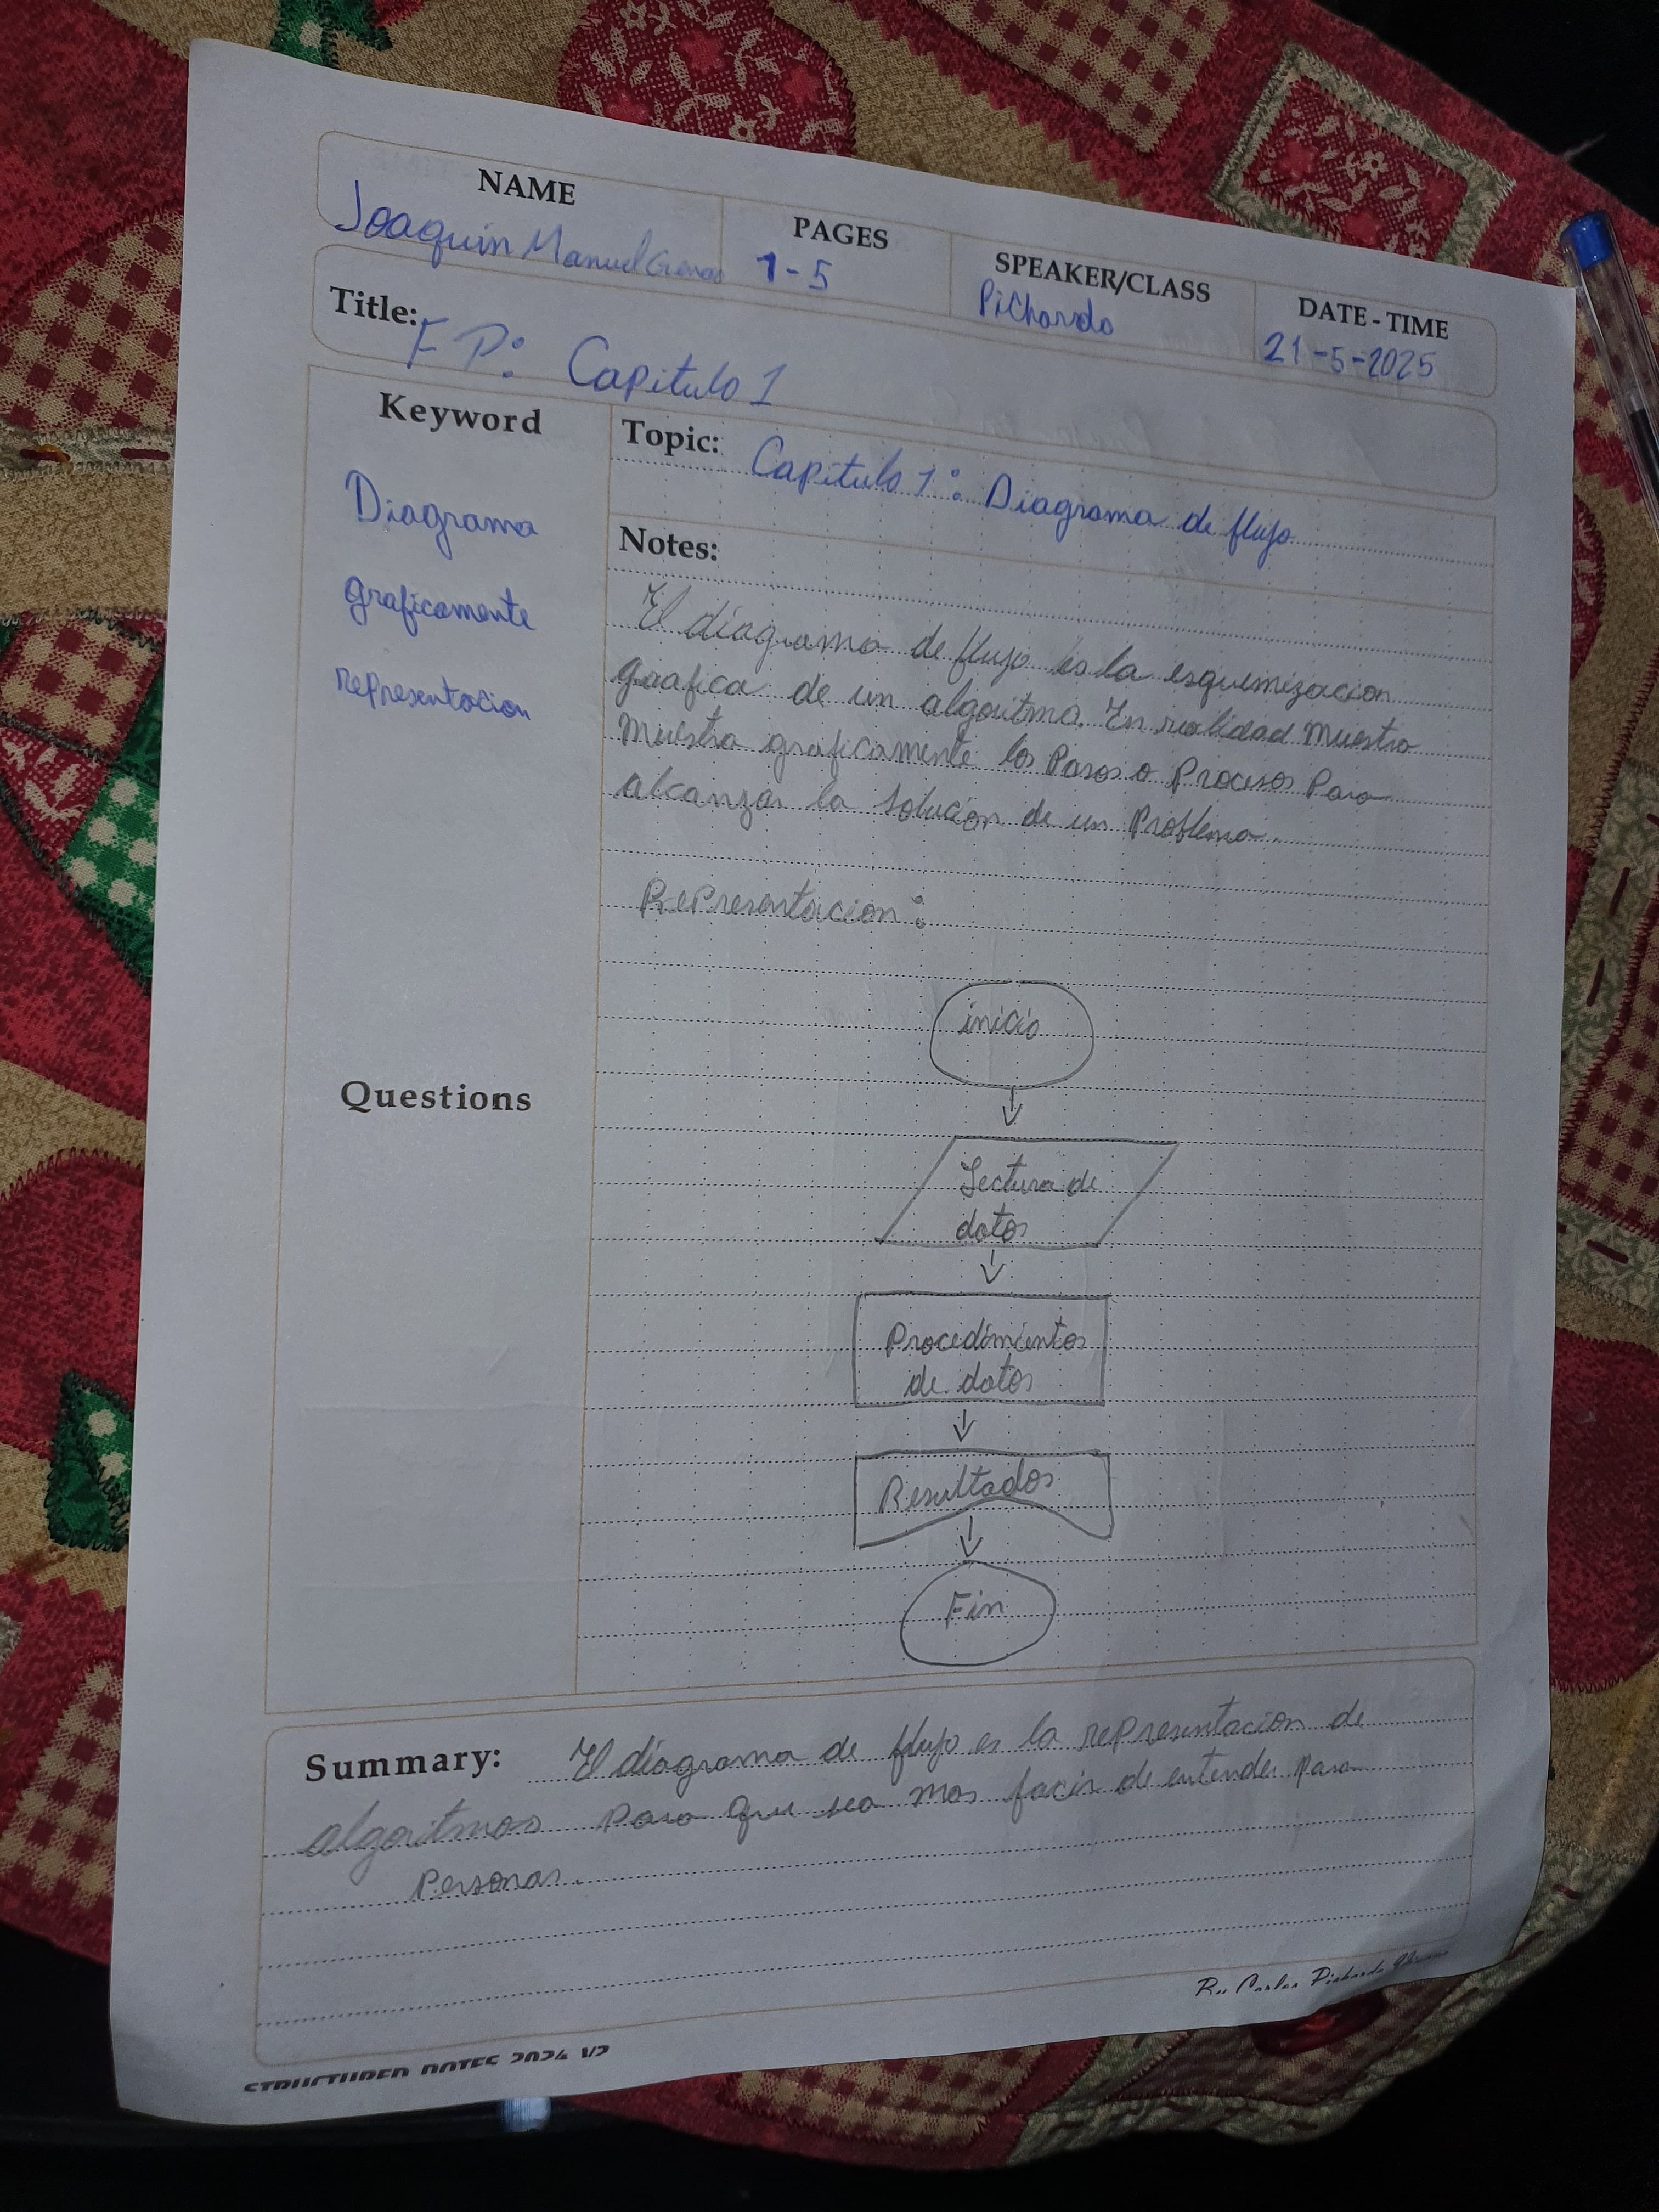 NAME
Joaquin Manuel
PAGES
1-5
SPEAKER/CLASS
Pichardo
DATE - TIME
21-5-2025
Title: F P: Capitulo 1
Keyword
Diagrama
graficamente
representacion
Questions
Topic: Capitulo 1: Diagrama de flujo
Notes:
El diagrama de flujo es la esquemizacion
grafica de un algoritmo. En realidad muestra
muestra graficamente los Pasos o Procesos Para
alcanzar la solucion de un Problema.
Representacion:
inicio
Lectura de
datos
Procedimientos
de datos
Resultados
Fin
Summary: El diagrama de flujo es la representacion de
algoritmos Para que sea mas facir de entender Para
Personas.
By Carlos Pichardo
STRUCTURED NOTES 2024 V2